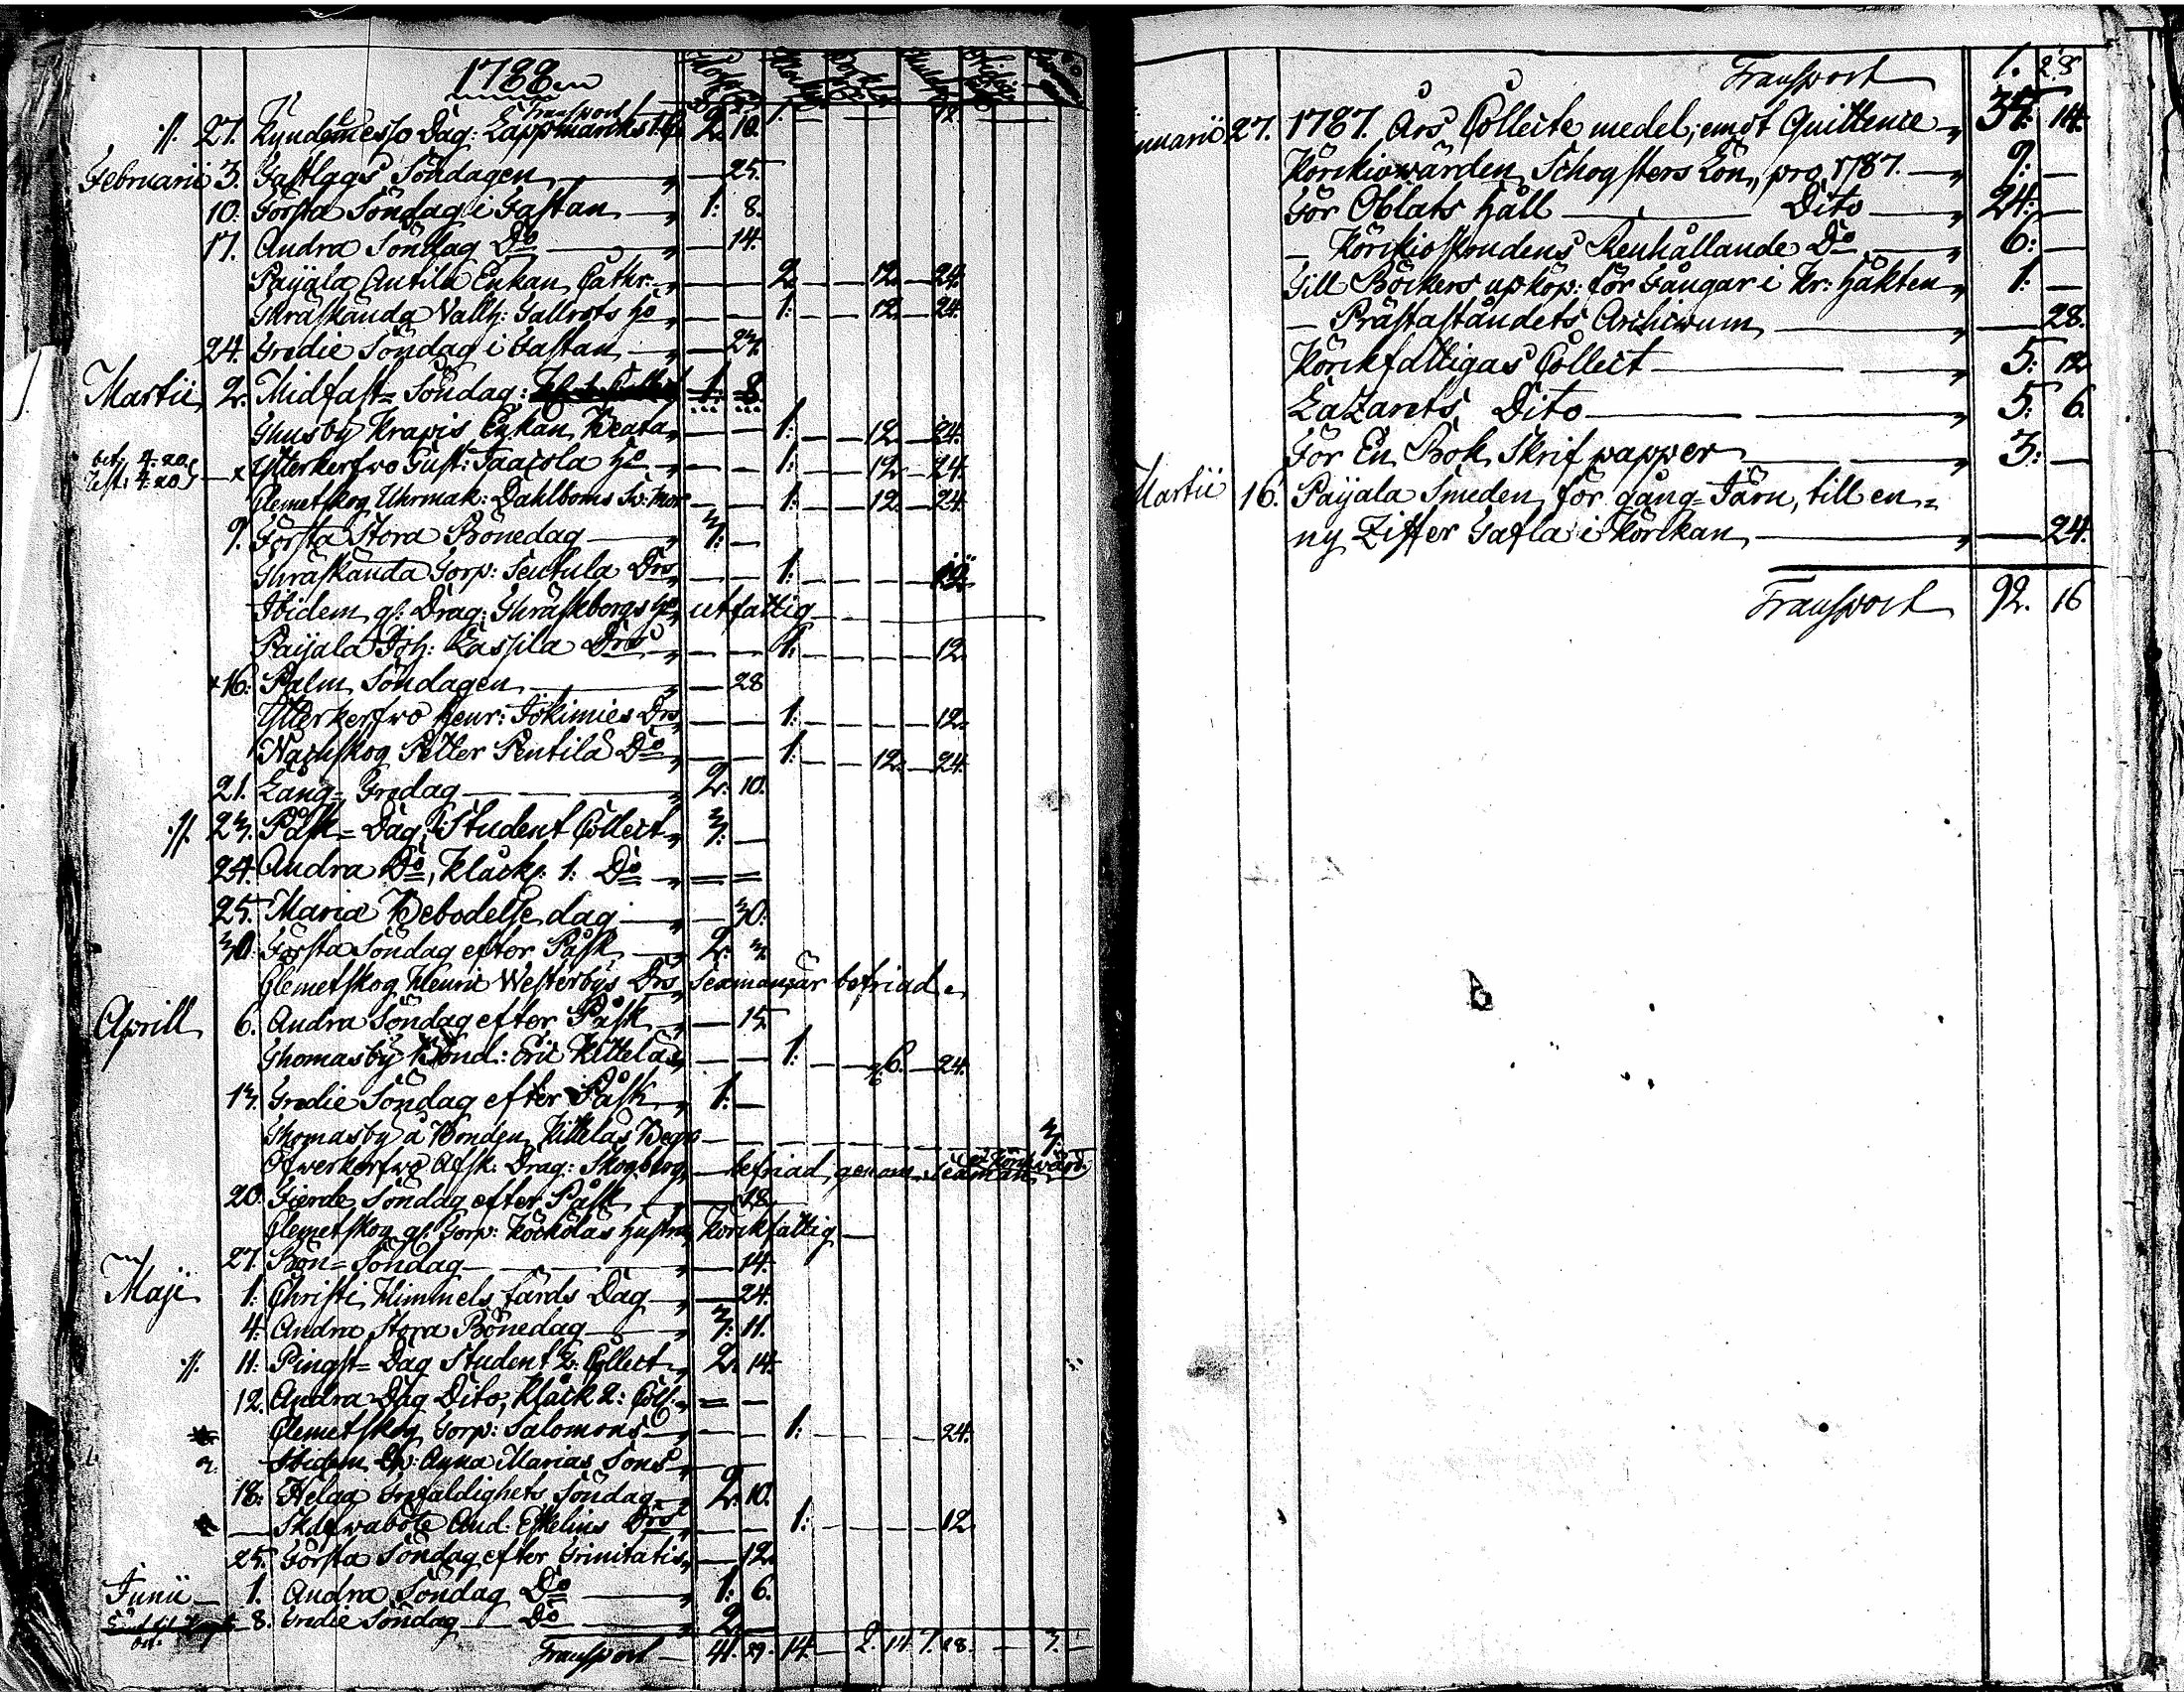 1788
Transport
27. Kyndelmesso Dag: Lappmarks 2. 10. 1. — — 12
Februarii 3. Fastlags Söndagen — 25.
10. Första Söndag i Fastan — 1: 8.
17. Andra Söndag Do — 14.
Payala Antila Enkan Cathr: — — 2. — — 12. — 24.
Thräskända Vallh: Gallrots Ho — — 1: — — 12 — 24.
24. Tredie Söndag i Fastan — 23.
Martii 2. Midfast= Söndag: 1: 8.
Krapis Enkan Beata — — 1: — — 12 — 24.
bet: 4. 20
rest: 4. 20 x Ytterkerfwo Gust: Ho — — 1: — — 12 — 24.
Clemetskog Uhrmak: Dahlboms Sw: Mor — — 1: — — 12 — 24.
9. Första Stora Bönedag — 3: —
Thräskända Torp: Sentula Drs — — 1: — — —
Ibidem gl: Drag: Thräskbergs Ho utfattig
Payala Joh: Lassila Drs — — 1: — — — 12
16. Palm Söndagen — 28
Ytterkerfwo Henr: Jokimies Drs — — 1: — — — 12.
Petter Pentila Do — — 1: — — 12. — 24.
21. Lång= Fredag — 2. 10.
23. Påsk= Dag, Student Collect 3: —
24. Andra Do, Klåck: 1: Do
25. Mariæ Bebodelse dag — 30.
30. Första Söndag efter Påsk — 2. 3.
Clemetskog Henric Westerbys Drs Sexman, är befriad.
Aprill 6. Andra Söndag efter Påsk — 15
Thomasby Bond: Eric Kittelas — — 1: — — 6. — 24.
13. Tredie Söndag efter Påsk 1: —
Thomasby å Bonden Kittelas Begr — 3:
Öfwerkerfwo Afsk: Drag: Skogberg — befriad genom Sexman
20. Fierde Söndag efter Påsk — 18
Clemetskog gl: Torp: Köckölas Hustru Körckfattig —
27. Bön= Söndag — 14.
Maji 1. Christi Himmels färds Dag — 24.
4. Andra Stora Bönedag — 3: 11.
11. Pingst= Dag Student 2: Collect 2. 14.
12. Andra Dag Dito, Klåck 2: Coll:
Clemetskog Torp: Salomons — — 1: — — — 24.
Ibidem Anna Marias Sons
18. Helga Trefaldighets Söndag 2. 10.
Skäfwaböle And: Eskelins Drs — — 1: — — — 12
25. Första Söndag efter Trinitatis — 12.
Junii 1. Andra Söndag Do — 1: 6.
8. Tredie Söndag — Do — 2
Transport — 41. 29. 14. — 2. 14. 7. 18. — 3. —
Transport 1. 28
Januarii 27. 1787. Års Collecte medel, emot Quittence 35 14.
Körckiowärden Schogsters Lön, pro 1787. 9: —
För Oblats håll — Dito — 24: —
— Körckiostrudens Renhållande Do — 6: —
Till Böckers upköp: för Fångar i Kr: häkten 1: —
— Prästaståndets Archivum — 28.
Körckfattigas Collect — 5: 12
Lazarets Dito — 5: 6.
För En Bok Skrif papper — 3: —
Martii 16. Payala Smeden för gång= Järn, till en
ny Ziffer Tafla i Körckan — 24.
Transport 92. 16